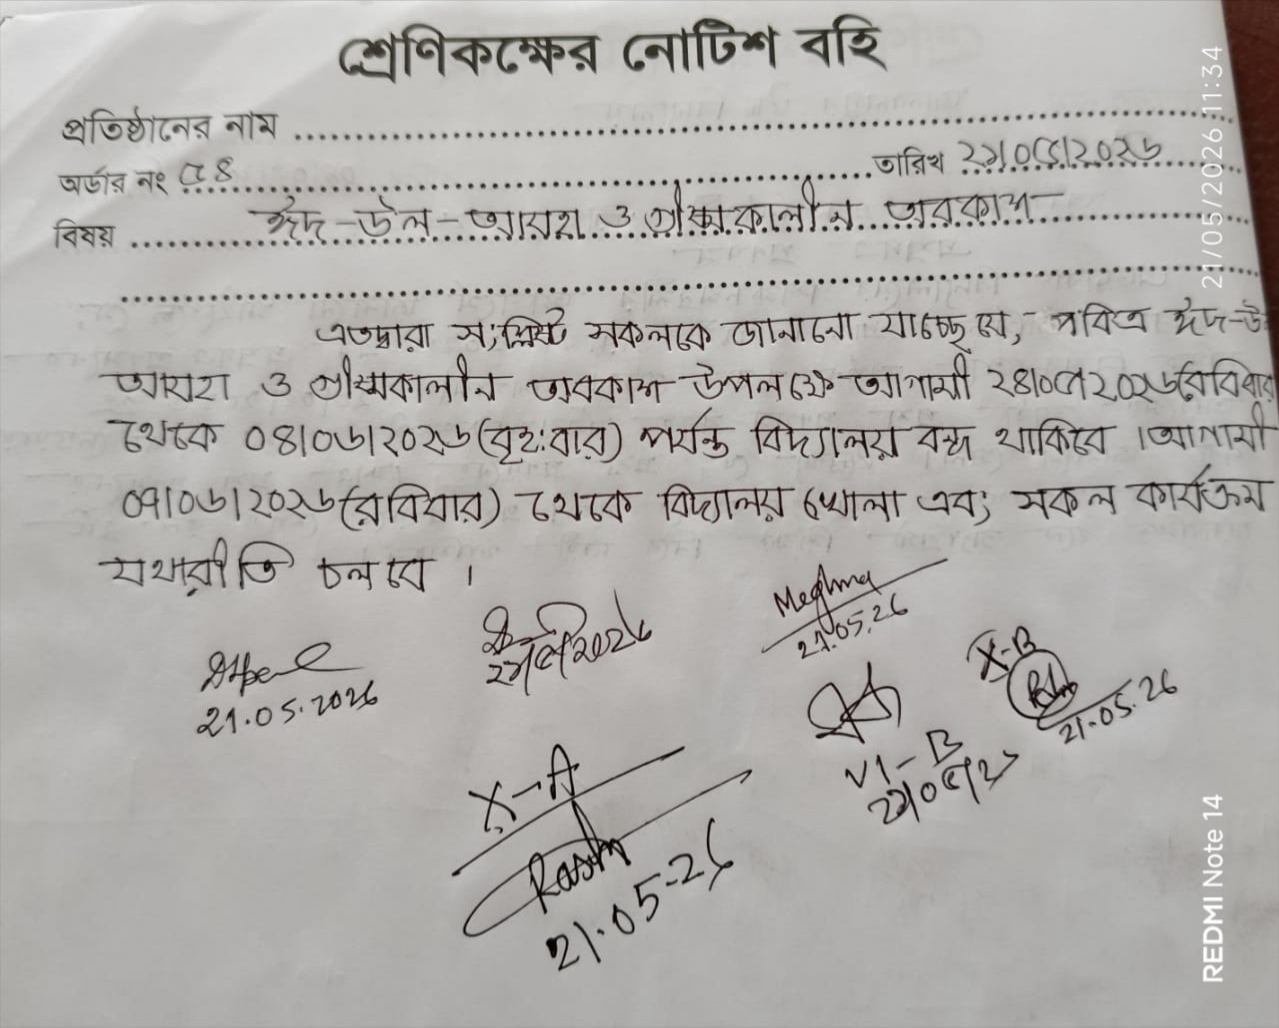 শ্রেণিকক্ষের নোটিশ বহি
প্রতিষ্ঠানের নাম
অর্ডার নং ৫৪ তারিখ ২১/০৫/২০২৬
বিষয় ঈদ-উল-আযহা ও গ্রীষ্মকালীন অবকাশ
এতদ্বারা সংশ্লিষ্ট সকলকে জানানো যাচ্ছে যে, পবিত্র ঈদ-উল
আযহা ও গ্রীষ্মকালীন অবকাশ উপলক্ষে আগামী ২৪/০৫/২০২৬(রবিবার
থেকে ০৪/০৬/২০২৬(বৃহ:বার) পর্যন্ত বিদ্যালয় বন্ধ থাকিবে। আগামী
০৭/০৬/২০২৬(রবিবার) থেকে বিদ্যালয় খোলা এবং সকল কার্যক্রম
যথারীতি চলবে।
Meghna
21.05.26
২১/৫/২০২৬
21.05.2026
X-B
21.05.26
VI-B
২১/০৫/২
X-A
21.05-26
21/05/2026 11:34
REDMI Note 14